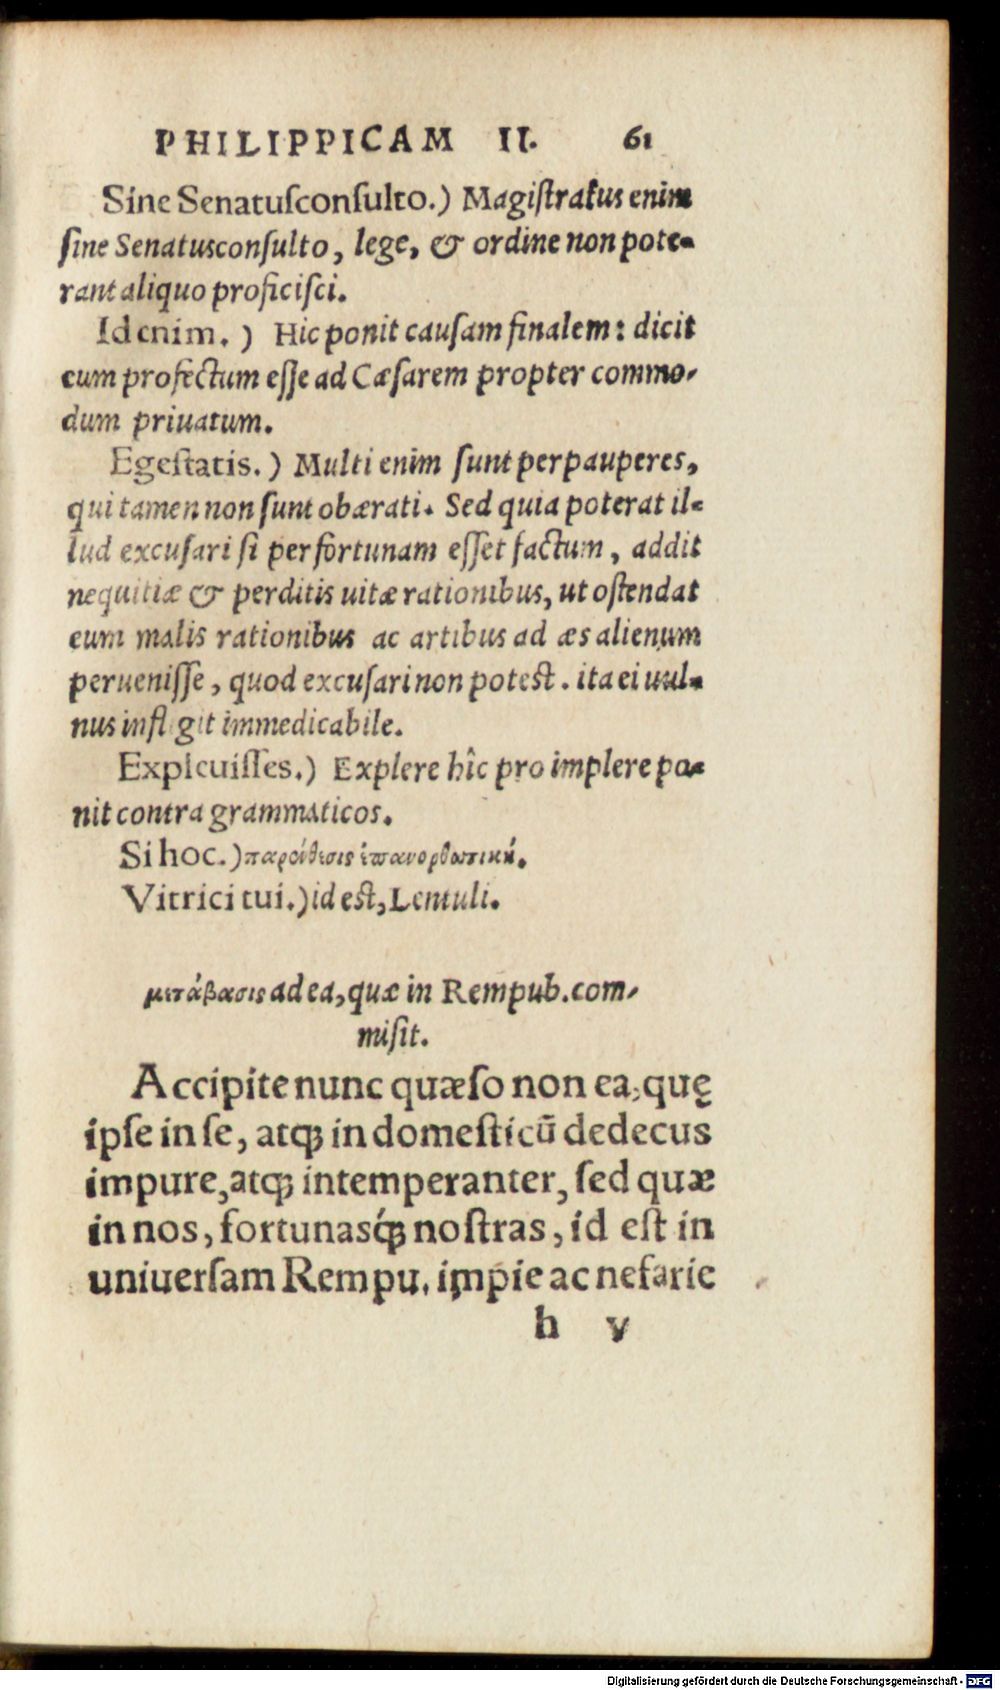 PHILIPPICAM II. 61
Sine Senatuſconſulto.) Magiſtratus enim
ſine Senatusconſulto, lege, & ordine non pote-
rant aliquo proficiſci.
Id enim.) Hic ponit cauſam finalem: dicit
eum profectum eſſe ad Cæſarem propter commo-
dum priuatum.
Egeſtatis.) Multi enim ſunt perpauperes,
qui tamen non ſunt obærati. Sed quia poterat il-
lud excuſari ſi per fortunam eſſet factum, addit
nequitiæ & perditis uitæ rationibus, ut oſtendat
eum malis rationibus ac artibus ad æs alienum
perueniſſe, quod excuſari non poteſt. ita ei uul-
nus infligit immedicabile.
Explcuiſſes.) Explere hîc pro implere po-
nit contra grammaticos.
Si hoc.) παράθεσις ἐπανορθωτική.
Vitrici tui.) id eſt, Lentuli.
μετάβασις ad ea, quæ in Rempub. com-
miſit.
Accipite nunc quæſo non ea, quę
ipſe in ſe, atqꝫ in domeſticū dedecus
impure, atqꝫ intemperanter, ſed quæ
in nos, fortunasq́ꝫ noſtras, id eſt in
uniuerſam Rempu. impie ac nefarie
h v
Digitalisierung gefördert durch die Deutsche Forschungsgemeinschaft - DFG